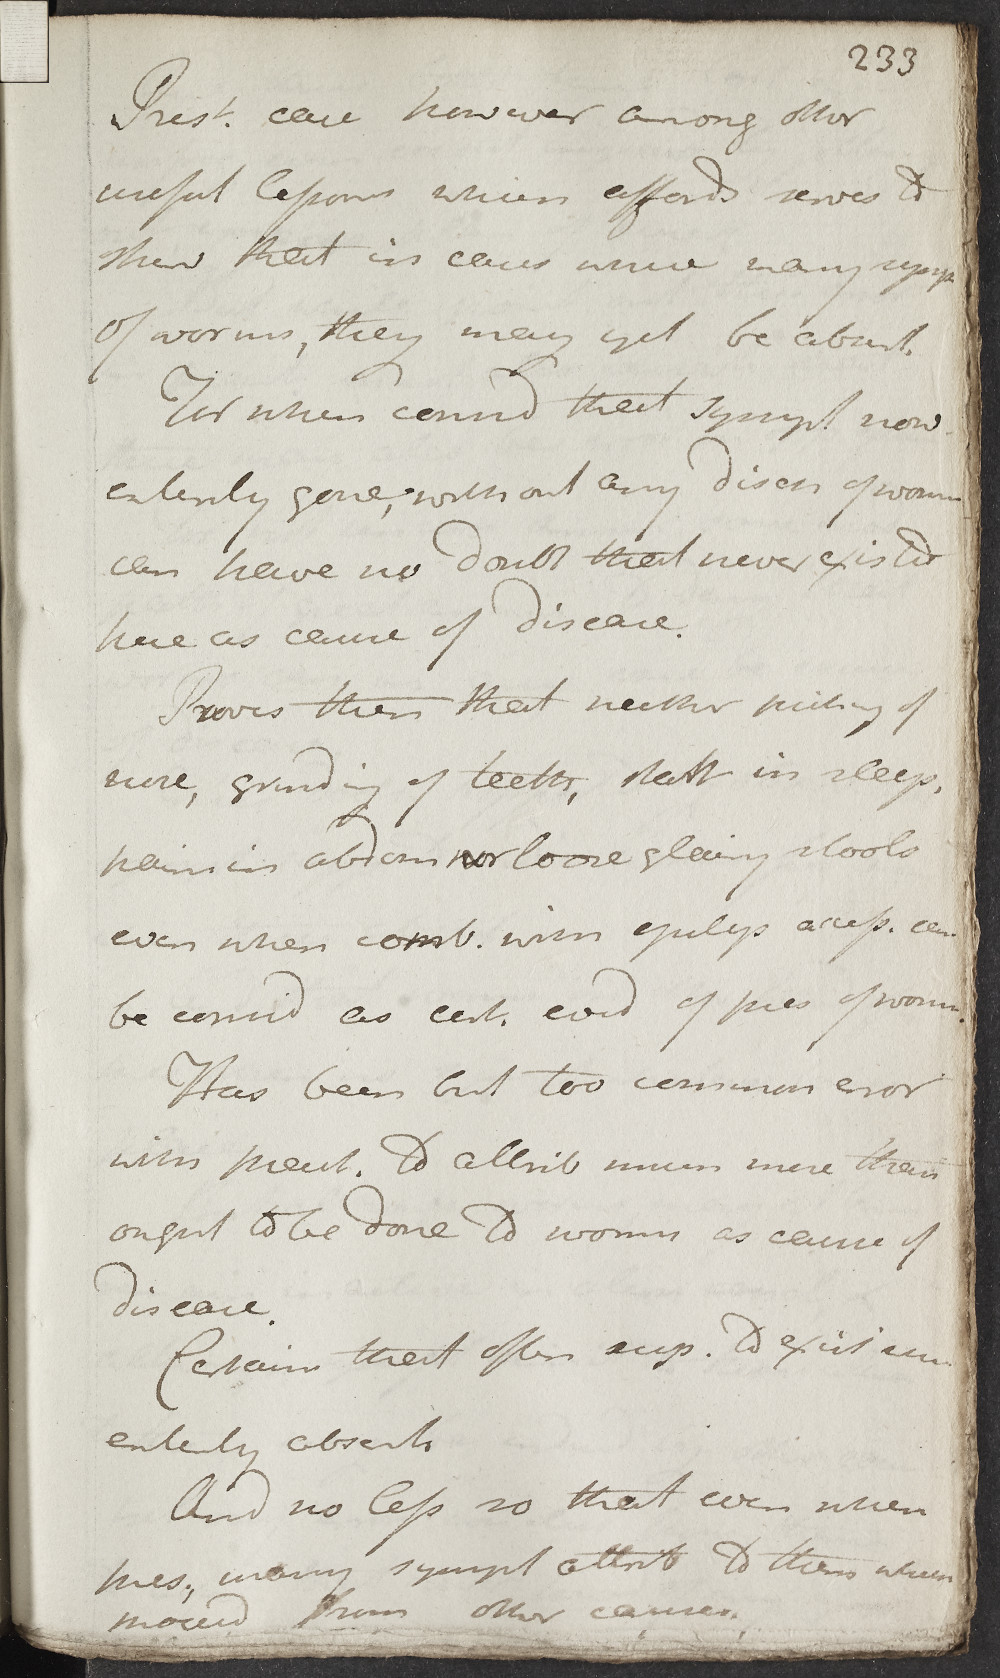 233
Prest. case however among other
useful lessons which affords serves to
shew that in cases where many sympt
of worms, they may yet be absent.
For when consid that sympt now
entirely gone, without any disch of worms
can have no doubt that never existed
here as cause of disease.
Proves then that neither picking of
nose, grinding of teeth, start in sleep,
pain in abdom nor loose glairy stools
even when comb. with epileps access. can
be consid as cert. evid of pres of worms.
Has been but too common error
with pract. to attrib much more than
ought to be done to worms as cause of
disease.
Certain that often sup. to exist when
entirely absent.
And no less so that even when
pres., many sympt attrib to them which
proceed from other causes.